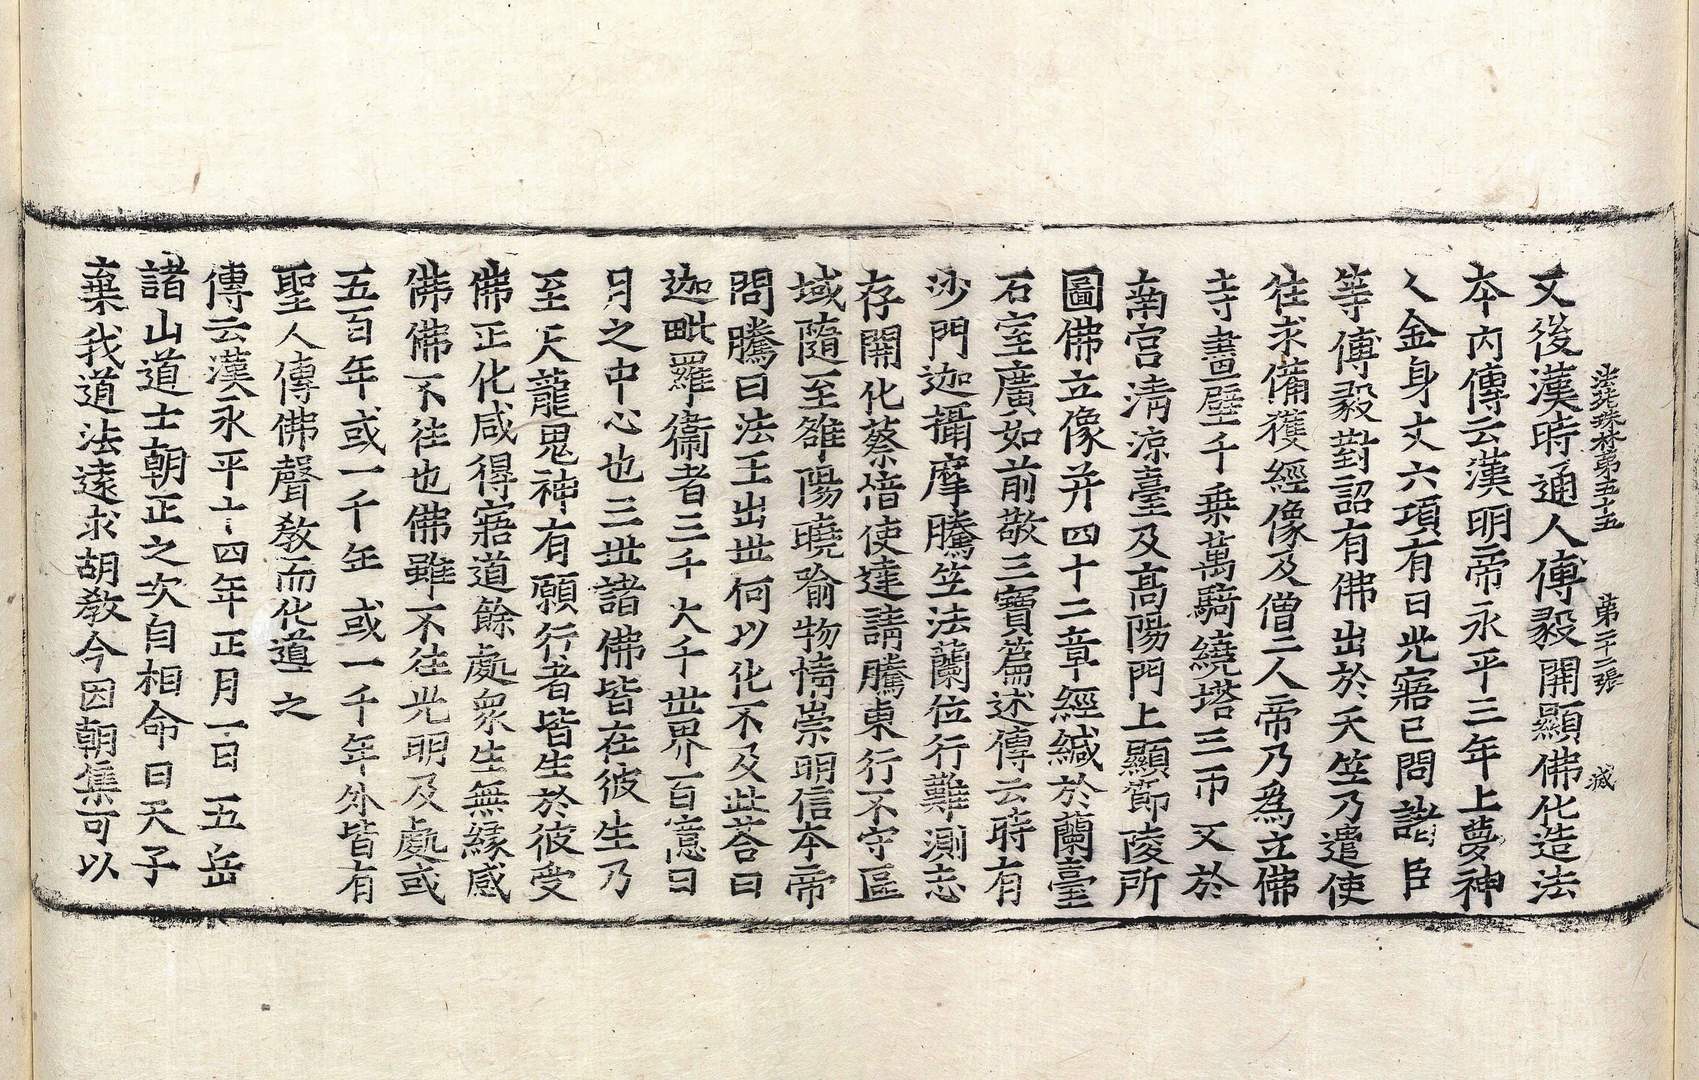 法苑珠林第五十五　第二十二張　㓕
又後漢時通人傅毅開顯佛化造法
本內傳云漢明帝永平三年上夢神
人金身丈六項有日光寤已問諸臣
等傅毅對詔有佛出於天竺乃遣使
往求備獲經像及僧二人帝乃爲立佛
寺畫壁千乗萬騎繞塔三帀又於
南宫清凉臺及髙陽門上顯節陵所
圖佛立像并四十二章經緘於蘭臺
石室廣如前敬三寶篇述傳云時有
沙門迦攝摩騰竺法蘭位行難測志
存開化蔡愔使達請騰東行不守區
域隨至雒陽曉喻物情崇明信本帝
問騰曰法王出世何以化不及此荅曰
迦毗羅衞者三千大千世界百億日
月之中心也三世諸佛皆在彼生乃
至天龍鬼神有願行者皆生於彼受
佛正化咸得寤道餘處衆生無緣感
佛佛不往也佛雖不往光明及處或
五百年或一千年或一千年外皆有
聖人傳佛聲敎而化道之
傳云漢永平十四年正月一日五岳
諸山道士朝正之次自相命曰天子
棄我道法遠求胡敎今因朝集可以